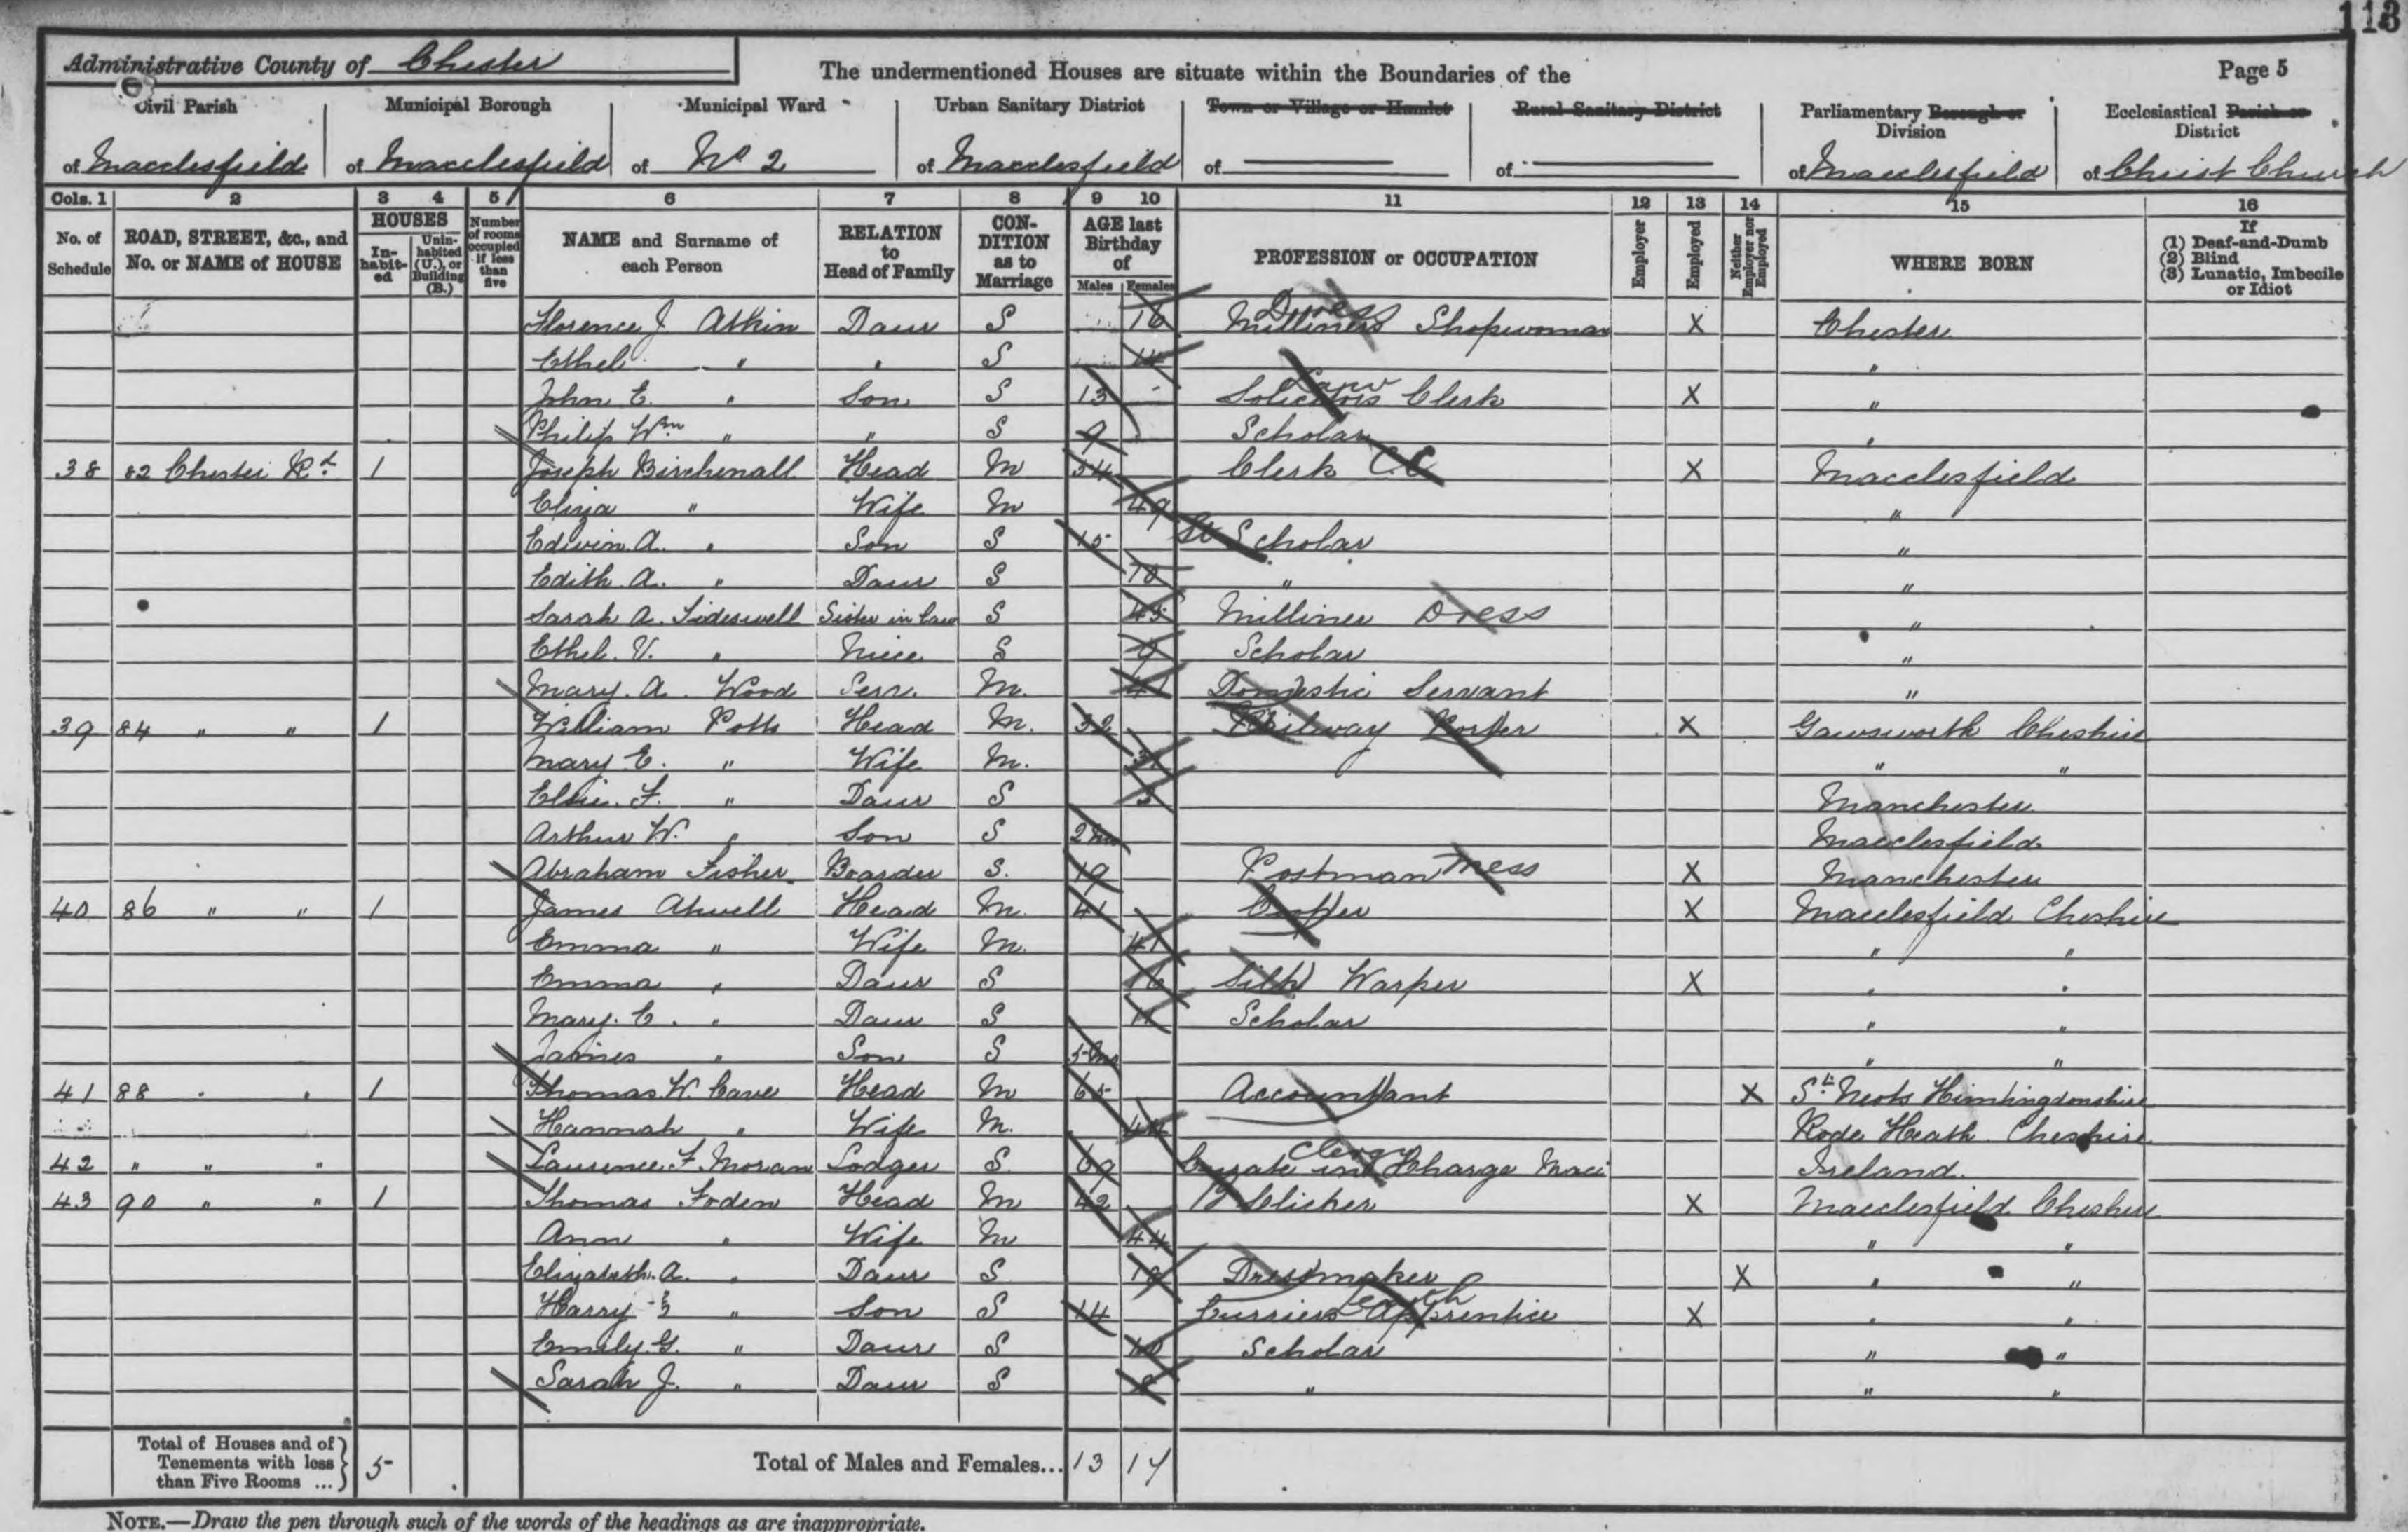 113
Administrative County of Chester
The undermentioned Houses are situate within the Boundaries of the
Page 5
Civil Parish of Macclesfield
Municipal Borough of Macclesfield
Municipal Ward of No 2
Urban Sanitary District of Macclesfield
Town or Village or Hamlet of
Rural Sanitary District of
Parliamentary Borough or Division of Macclesfield
Ecclesiastical Parish or District of Christ Church
Cols. 1 2 3 4 5 6 7 8 9 10 11 12 13 14 15 16
No. of Schedule
ROAD, STREET, &c., and No. or NAME of HOUSE
HOUSES
In-habit-ed
Unin-habited (U.), or Building (B.)
Number of rooms occupied if less than five
NAME and Surname of each Person
RELATION to Head of Family
CON-DITION as to Marriage
AGE last Birthday of
Males Females
PROFESSION or OCCUPATION
Employer
Employed
Neither Employer nor Employed
WHERE BORN
If
(1) Deaf-and-Dumb
(2) Blind
(3) Lunatic, Imbecile or Idiot
Florence J. Atkin Daur S 16 Milliners Shopwoman Dress X Chester
Ethel " " S 14 "
John E. " Son S 13 Solicitors Clerk Law X "
Philip Wm " " S 9 Scholar "
38 82 Chester Rd 1 Joseph Birchenall Head M 54 Clerk C.C X Macclesfield
Eliza " Wife M 49 "
Edwin A. " Son S 15 St Scholar "
Edith A. " Daur S "  "
Sarah A. Sideswell Sister in law S 45 Milliner Dress "
Ethel. V. " Niece S 9 Scholar "
Mary. A. Wood Serv. M. Domestic Servant "
39 84 " " 1 William Potts Head M. 32 Railway Porter X Gawsworth Cheshire
Mary E. " Wife M. " "
Elsie. F. " Daur S 3 Manchester
Arthur W. " Son S 2 Mo Macclesfield
Abraham Fisher Boarder S. 19 Postman Mess X Manchester
40 86 " " 1 James Atwell Head M. 41 X Macclesfield Cheshire
Emma " Wife M. 41 " "
Emma " Daur S 16 Silk Warper X " "
Mary. E. " Daur S 11 Scholar " "
James " Son S 5 Mo " "
41 88 " " 1 Thomas W. Cave Head M 65 Accountant X St. Neots Huntingdonshire
Hannah " Wife M. Rode Heath Cheshire
42 " " " Laurence F. Moran Lodger S. 69 Curate in Charge Macc Clergy Ireland
43 90 " " 1 Thomas Foden Head M 42 Clicker X Macclesfield Cheshire
Ann " Wife M 44 " "
Elizabeth. A. " Daur S 19 Dressmaker X " "
Harry " Son S 14 Curriers Apprentice Leath X " "
Emily. G. " Daur S 10 Scholar " "
Sarah J. " Daur S " " "
Total of Houses and of Tenements with less than Five Rooms ... 5
Total of Males and Females... 13 17
NOTE.—Draw the pen through such of the words of the headings as are inappropriate.